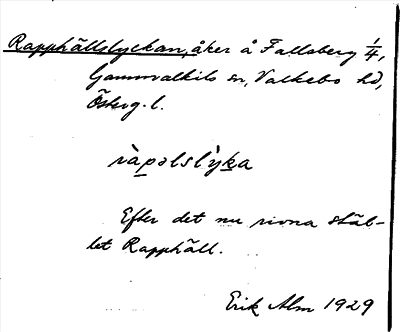 Rapphällslyckan, åker å Fallsberg 1/4,
Gammalkils sn, Valkebo hd,
Österg. l.
ràpəlslỳka
Efter det nu rivna stäl-
let Rapphäll.
Erik Alm 1929